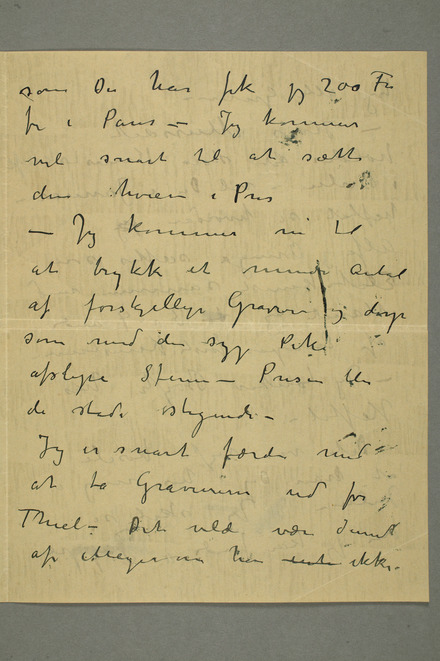 som De har fik jeg 200 Fr
for i Paris — Jeg kommer
vel snart til at sætte
dem høiere i Pris
— Jeg kommer nu til
at trykke et mindre Antal
af forskjellige Gravurer og derpå
som med den syge Pike
afslipe Stenen — Prisen blir
da stadi stigende —
Jeg er snart færdi med
at ta Gravurerne ud for
Thiel — Det vilde være dumt
af Meyer om han ikke